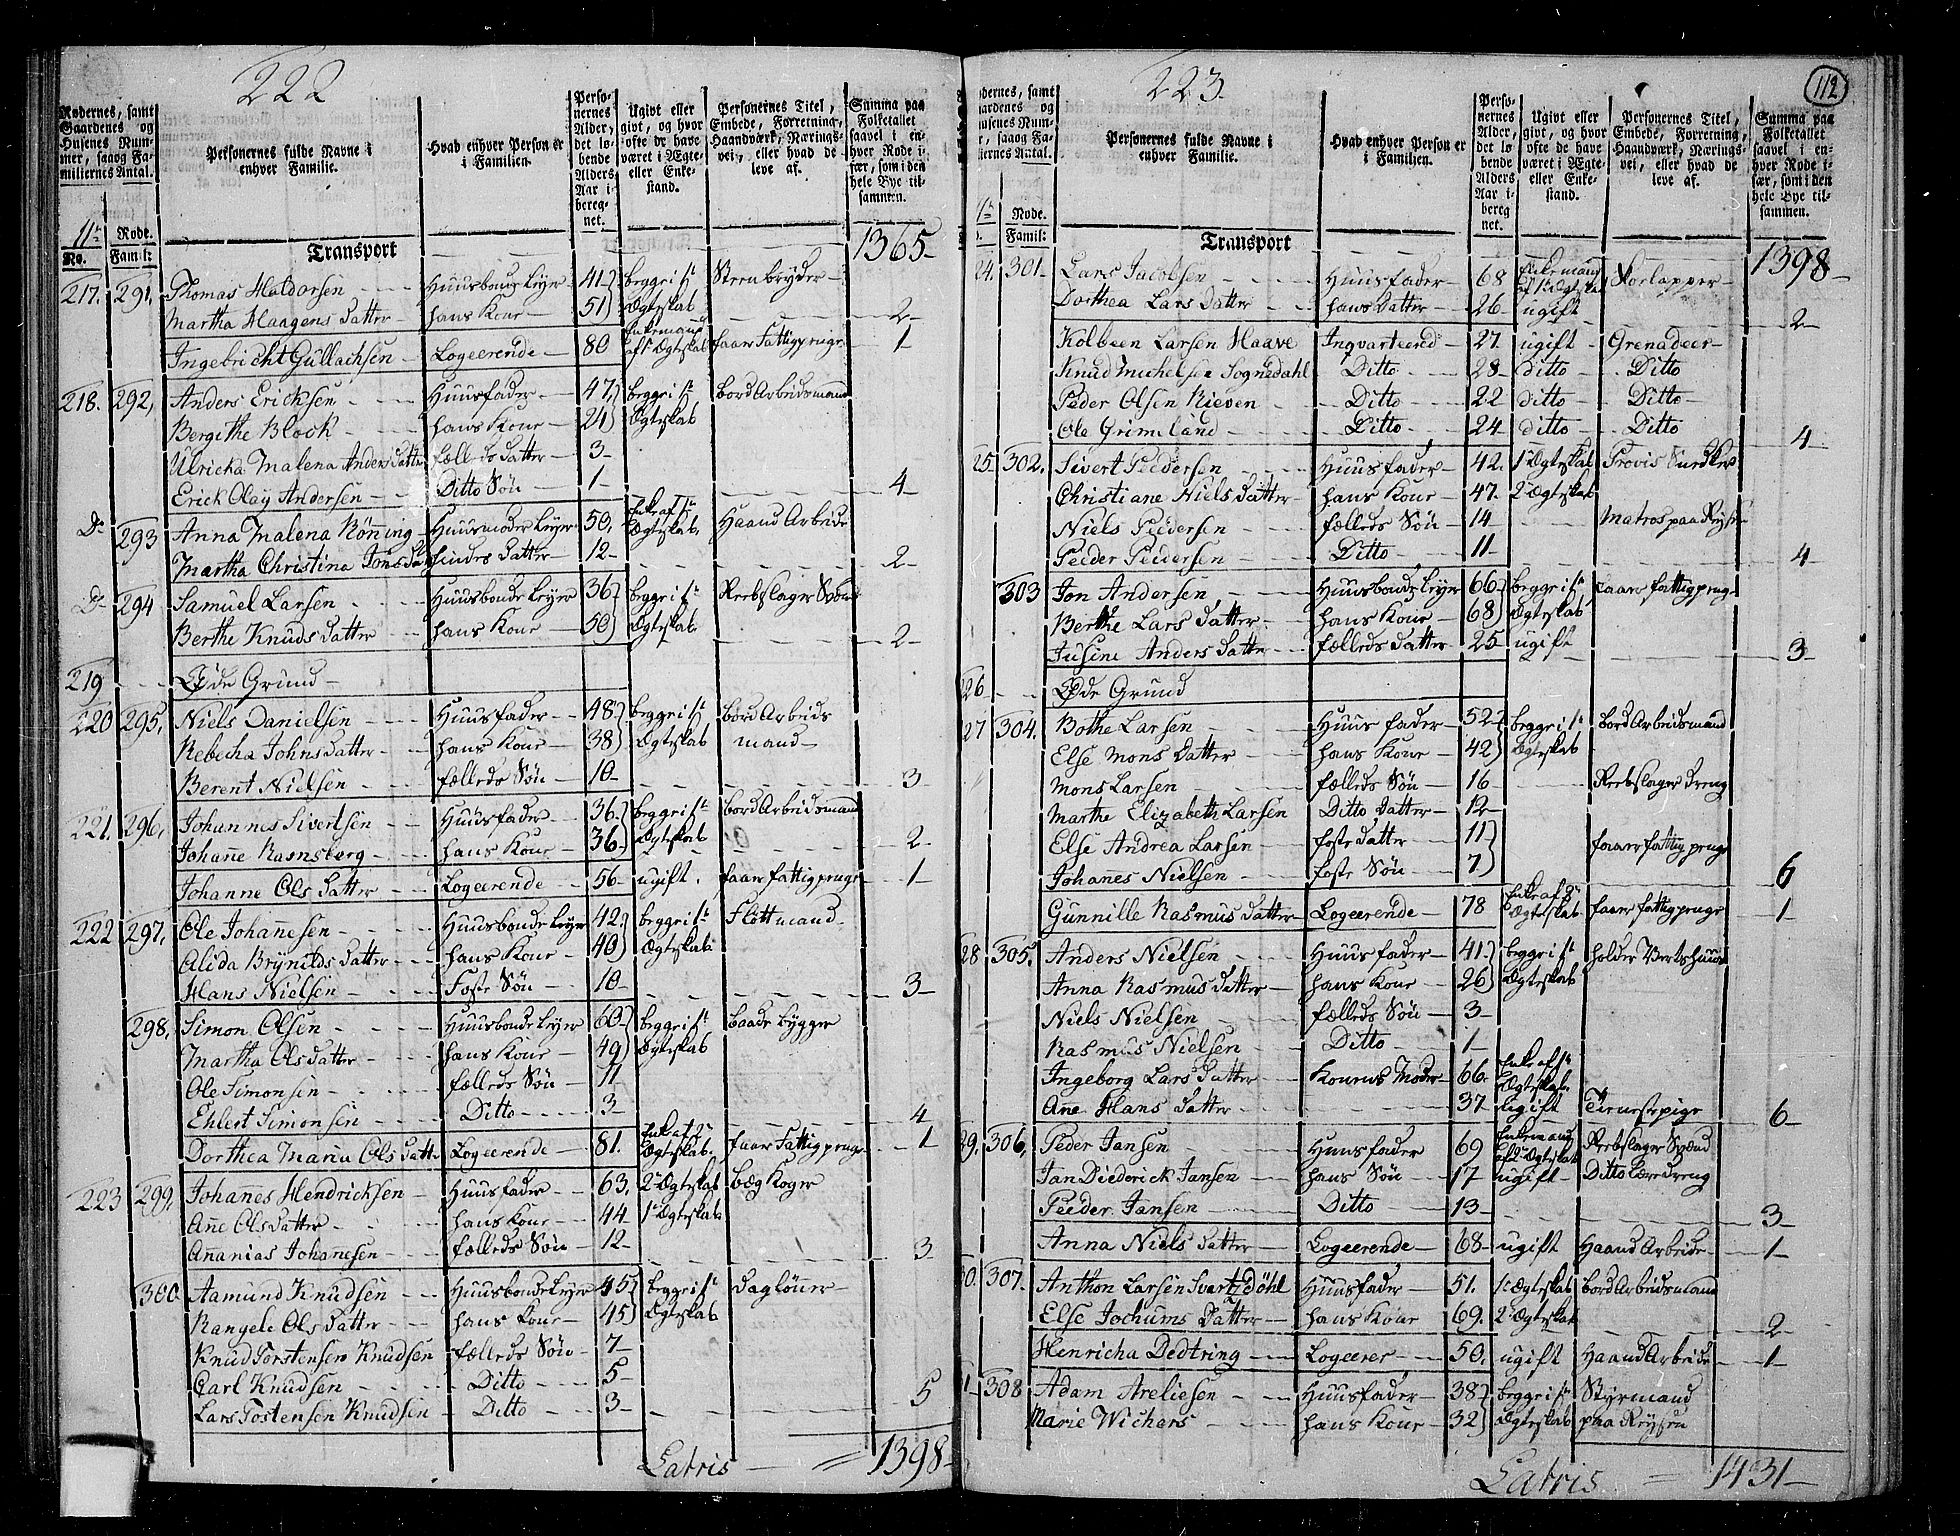 222
Rodernes, samt Gaardenes og Husenes Nummer, saaog Familiernes Antal.
Personernes fulde Navne i enhver Familie.
Hvad enhver Person er i Familien.
Personernes Alder, det løbende Alders Aar iberegnet.
Ugivt eller givt, og hvor ofte de have været i Ægte- eller Enkestand.
Personernes Titel, Embede, Forretning, Haandværk, Nærings-vei, eller hvad de leve af.
Summa paa Folketallet saavel i enhver Rode især, som i den hele Bye tilsammen.
11te Rode.
No. Famil:
Transport 1365
217. 291. Thomas Haldorsen Huusbonde Leyer 41 begge i 1te Steenbryder
Martha Haagens datter hans Kone 51 Ægteskab 2
Ingebricht Gullachsen Logeerende 80 Enkemand af 1te Ægteskab faar Fattigpenge 1
218. 292. Anders Ericksen Huusfader 47 begge i 1te bord Arbeidsmand
Bergithe Block hans Kone 24 Ægteskab
Ulricka Malena Anders datter fælleds datter 3
Erick Olay Andersen Ditto Søn 1 4
Do 293 Anna Malena Rønning Huusmoder Leyer 50. Enke af 1te Ægteskab Haand Arbeide
Martha Christina Jonsdat hindes datter 12 2
Do 294 Samuel Larsen Huusbonde Leyer 36 begge i 1te Reebslager Svend
Berthe Knuds datter hans Kone 50 Ægteskab 2
219 Øde Grund
220 295. Niels Danielsen Huusfader 48 begge i 1te bord Arbeids
Rebecha Johns datter hans Kone 38 Ægteskab mand
Berent Nielsen fælleds Søn 10 3
221. 296. Johannes Sivertsen Huusfader 36. begge i 1te bord Arbeidsmand
Johanne Ramsberg hans Kone 36 Ægteskab 2
Johanne Ols datter Logeerende 56 ugift. faar fattigpenge 1
222 297. Ole Johannesen Huusbonde Leyer 42. begge i 1te Flottmand
Alida Brynilds datter hans Kone 40 Ægteskab
Hans Nielsen Foste Søn 10 3
298. Simon Olsen Huusbonde Leyer 60 begge i 1te baade bygger
Martha Olsdatter hans Kone 49 Ægteskab
Ole Simonsen fælleds Søn 11
Ehlert Simonsen Ditto 3 4
Dorthea Maria Ols datter Logeerende 81. Enke af 2de Ægteskab. faar Fattigpenge 1
223 299. Johannes Hendricksen Huusfader 63. 2de Ægteskab bæg Koger
Anne Olsdatter hans Kone 44 1te Ægteskab
Ananias Johannesen fælleds Søn 12 3
300 Aamund Knudsen Huusbonde Leyer 45 begge i 1te dagløner
Rangele Ols datter hans Kone 45 Ægteskab
Knud Torstensen Knudsen fælleds Søn 7
Carl Knudsen Ditto 5
Lars Tostensen Knudsen Ditto 3 5
Latris = 1398
223.
112
dernes, samt ardenes og usenes Num-, saaog Fa-iliernes Antal.
Personernes fulde Navne i enhver Familie.
Hvad enhver Person er i Familien.
Personernes Alder, det løbende Alders Aar iberegnet.
Ugivt eller givt, og hvor ofte de have været i Ægte- eller Enkestand.
Personernes Titel, Embede, Forretning, Haandværk, Nærings-vei, eller hvad de leve af.
Summa paa Folketallet saavel i enhver Rode især, som i den hele Bye tilsammen.
Rode.
Famil:
Transport 1398
24. 301 Lars Jacobsen Huusfader 68 Enkemand af 1te Ægteskab Skoelapper
Dorthea Lars datter hans datter 26 ugift 2
Kolbeen Larsen Haave Inqvarteered 27 ugift Grenadeer
Knud Michelsen Sognedahl Ditto 28 ditto Ditto
Peder Olsen Rieven Ditto 22 ditto Ditto
Ole Grimeland Ditto 24 ditto Ditto 4
25. 302. Sivert Peedersen Huusfader 42. 1te Ægteskab
Christiane Niels datter hans Kone 47 2de Ægteskab
Niels Peedersen fælleds Søn 14 Matros paa Reyse
Peeder Peedersen Ditto 11 4
303 Jon Andersen Huusbonde Leyer 66 begge i 1te faar fattigpenge
Berthe Lars datter hans Kone 68 Ægteskab
Jusine Anders datter fælleds datter 25 ugift 3
26 Øde Grund
27 304. Bothe Larsen Huusfader 52 begge i 1te bord Arbeidsmand
Else Mons datter hans Kone 42 Ægteskab
Mons Larsen fælleds Søn 16 Reebslager dreng
Marthe Elizabeth Larsen Ditto datter 12
Else Andrea Larsen foste datter 11 faaer fattig penge
Johanes Nielsen foste Søn 7 6
Gunnille Rasmus datter Logeerende 78 Enke af 2de Ægteskab faar fattigpenge 1
28 305. Anders Nielsen Huusfader 41 begge i 1te holder Vertshuus
Anna Rasmus datter hans Kone 26 Ægteskab
Niels Nielsen fælleds Søn 3
Rasmus Nielsen Ditto 1
Ingeborg Lars datter Konens Moder 66 Enke af 1te Ægteskab
Ane Hans datter 37 ugift Tienestepige 6
29. 306. Peder Jansen Huusfader 69 Enkemand af 2de Ægteskab Reebslager Svend
Jan Diederick Jansen hans Søn 17 ugift Ditto Læredreng
Peeder Jansen Ditto 13 3
Anna Niels datter Logeerende 68 ugift Haand Arbeide 1
30. 307. Anthon Larsen Svartzdöhl Huusfader 51. 1te Ægteskab bord Arbeidsmand
Else Jochums Datter hans Kone 69. 2de Ægteskab 2
Henricha Dedtring Logeerer 50. ugift Haand Arbeide 1
1 308 Adam Areliesen Huusfader 38 begge i 1te Styrmand
Marie Wichers hans Kone 32 Ægteskab paa Reysen
Latris = 1431